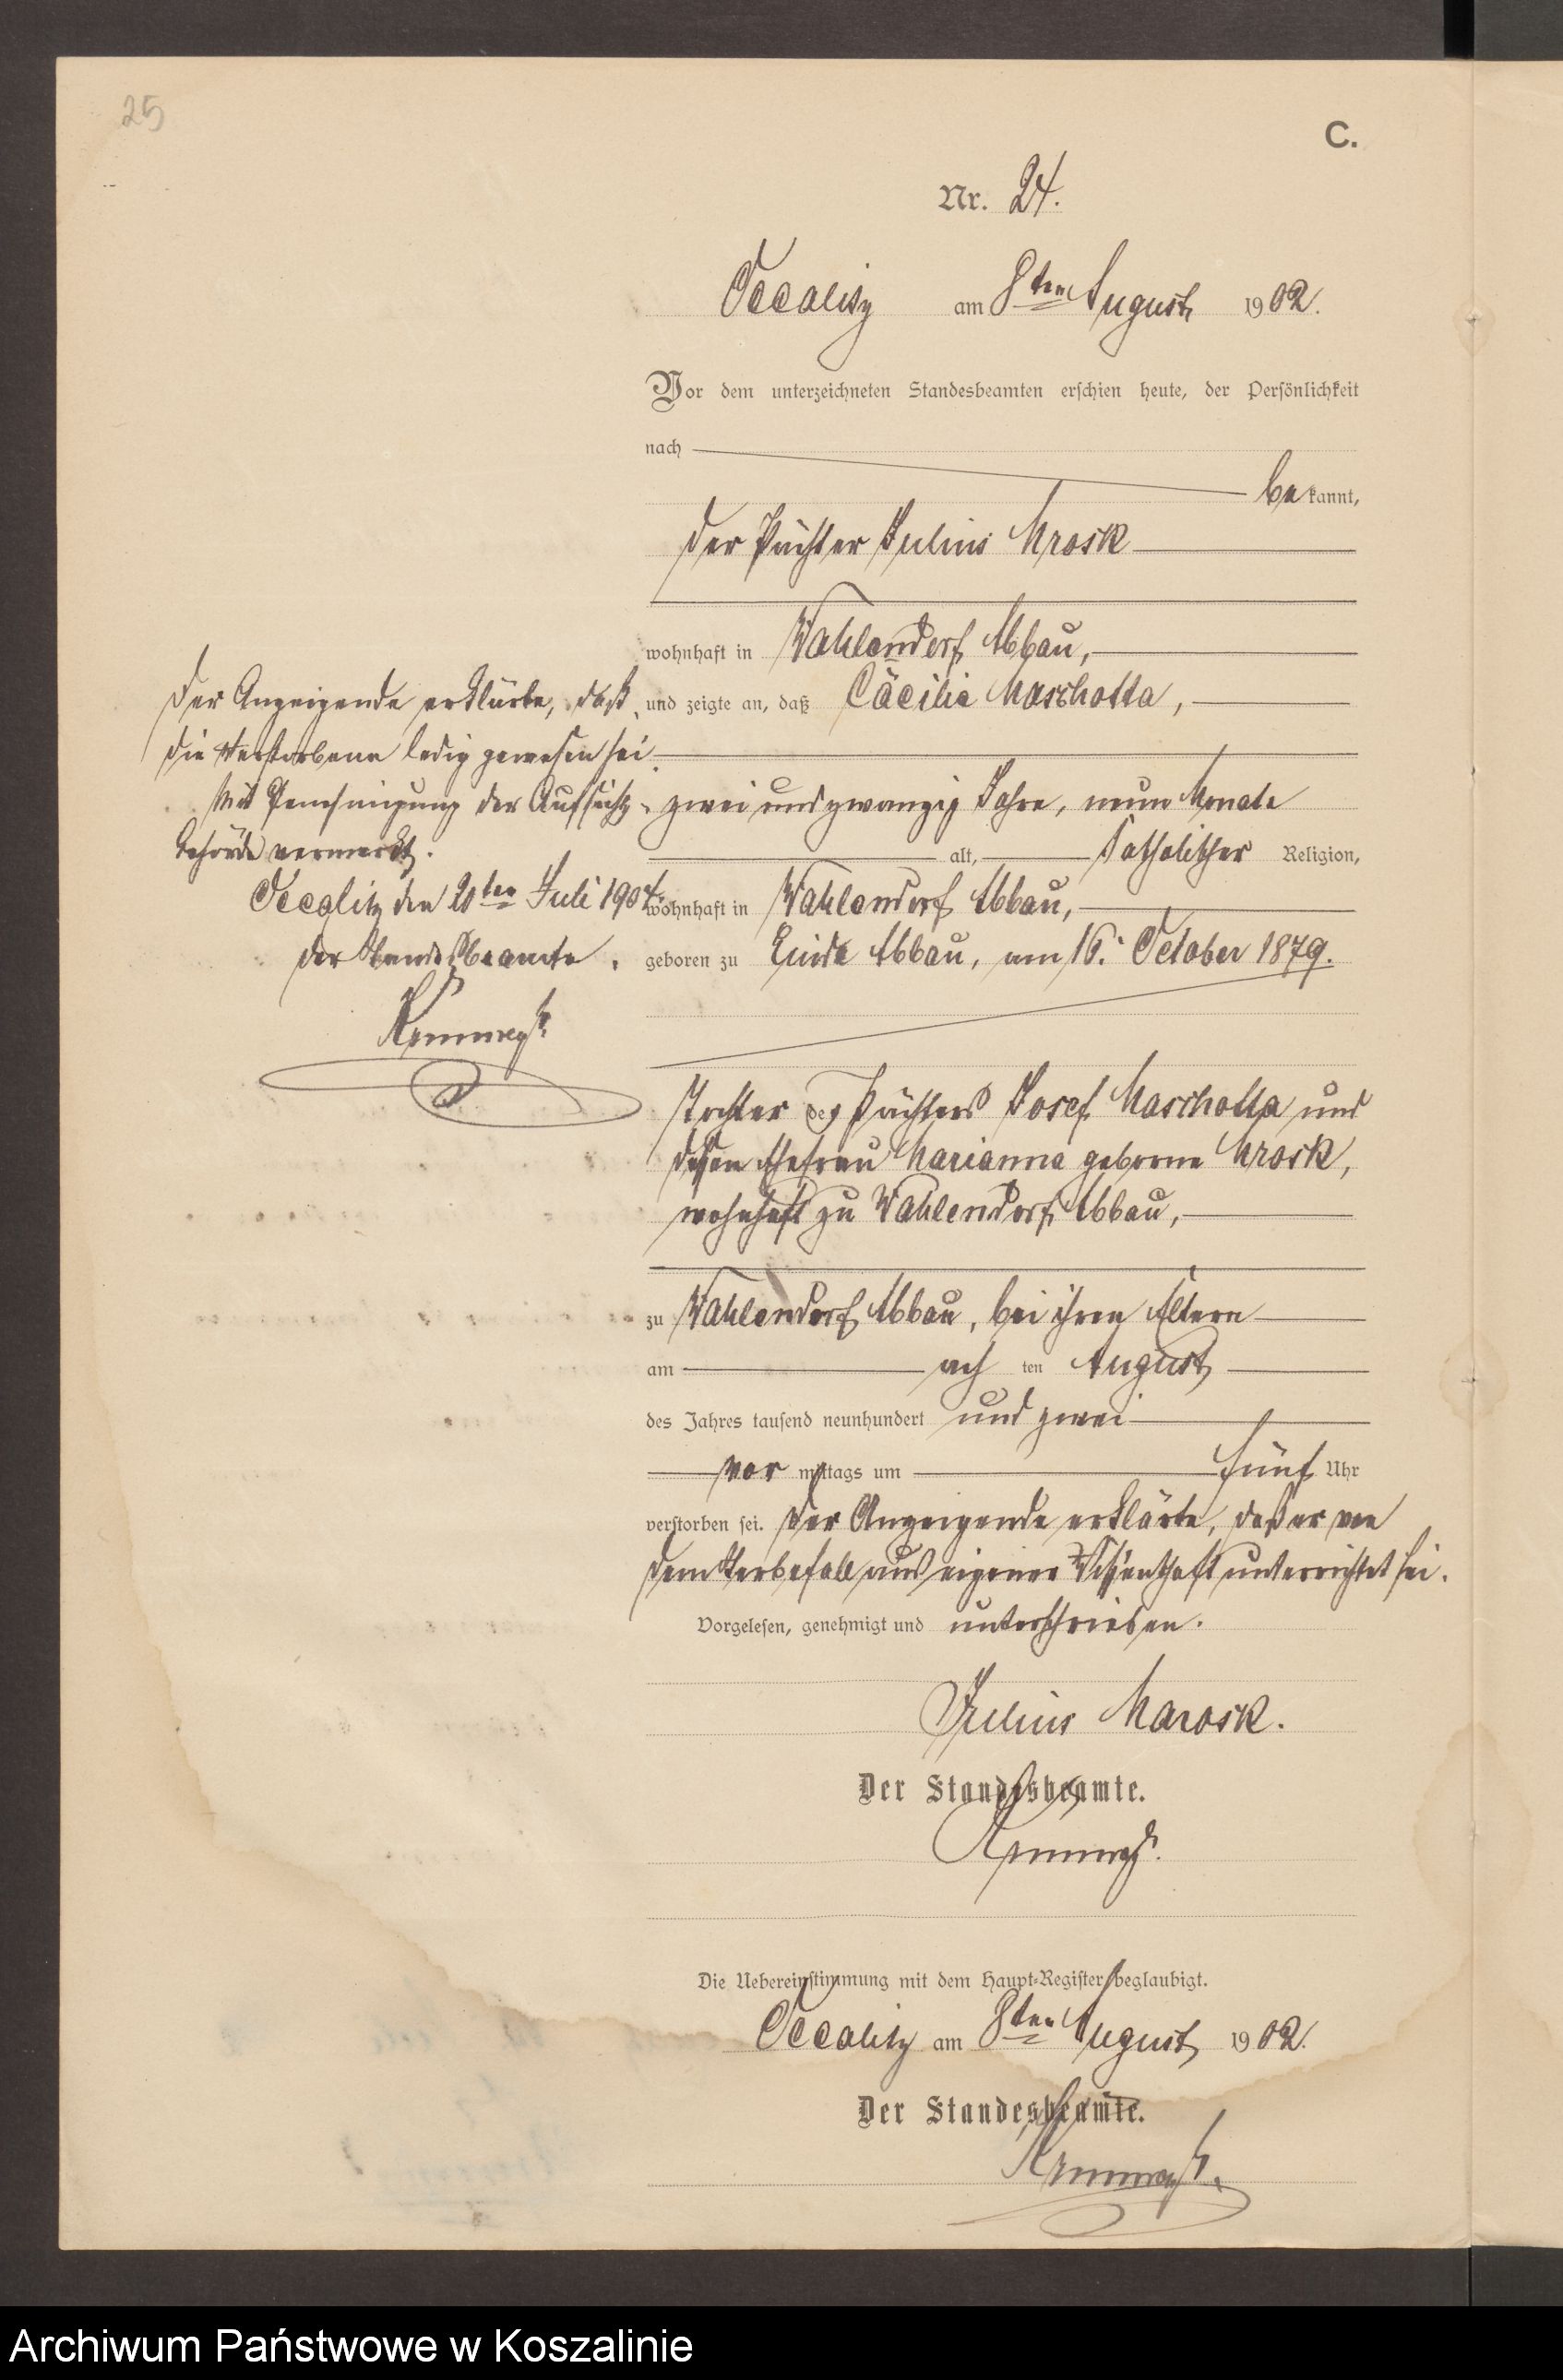 25
C.
Nr. 24.
Occalitz am 8ten August 1902.
Vor dem unterzeichneten Standesbeamten erschien heute, der Persönlichkeit
nach
bekannt,
der Pächter Julius Mrosk
wohnhaft in Wahlendorf Abbau,
und zeigte an, daß Cäcilia Maschotta,
zwei und zwanzig Jahre, neun Monate
alt, katholischer Religion,
wohnhaft in Wahlendorf Abbau,
geboren zu Abbau, am 16. October 1879.
Tochter des Pächters Josef Maschotta und
dessen Ehefrau Marianna geborne Mrosk,
wohnhaft zu Wahlendorf Abbau,
zu Wahlendorf Abbau, bei ihren Eltern
am achten August
des Jahres tausend neunhundert und zwei
vormittags um fünf Uhr
verstorben sei. Der Anzeigende erklärte, daß er von
dem Sterbefall aus eigener Wissenschaft unterrichtet sei.
Vorgelesen, genehmigt und unterschrieben.
Julius Marosk.
Der Standesbeamte.
Die Uebereinstimmung mit dem Haupt-Register beglaubigt.
Occalitz am 8ten August 1902.
Der Standesbeamte.
Der Anzeigende erklärte, daß
die Verstorbene ledig gewesen sei.
Mit Genehmigung der Aufsichts-
behörde vermerkt.
Occalitz den 20ten Juli 1904.
Der Standesbeamte.
Archiwum Państwowe w Koszalinie